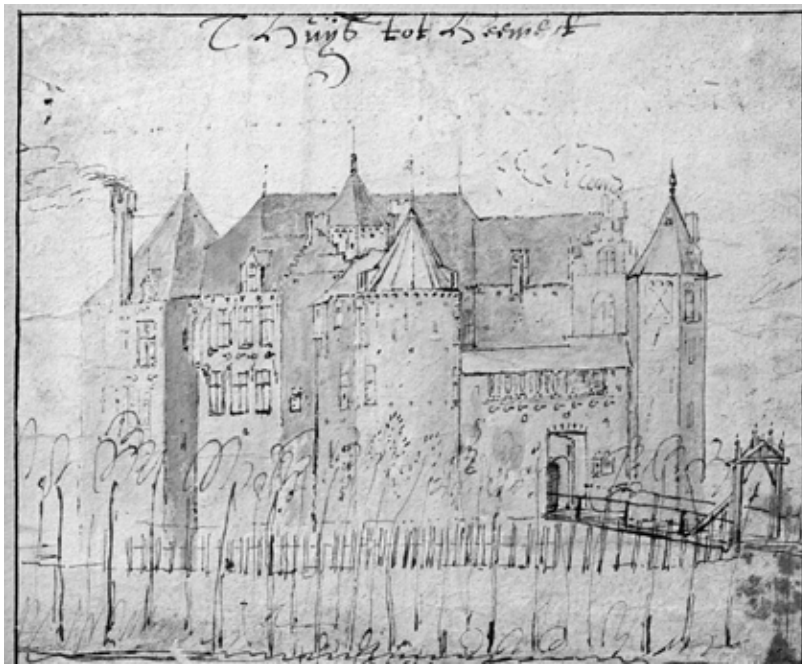 T Huijs tot Heemert